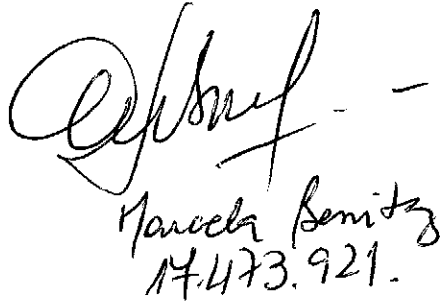 Marcela Benitez
17.473.921.